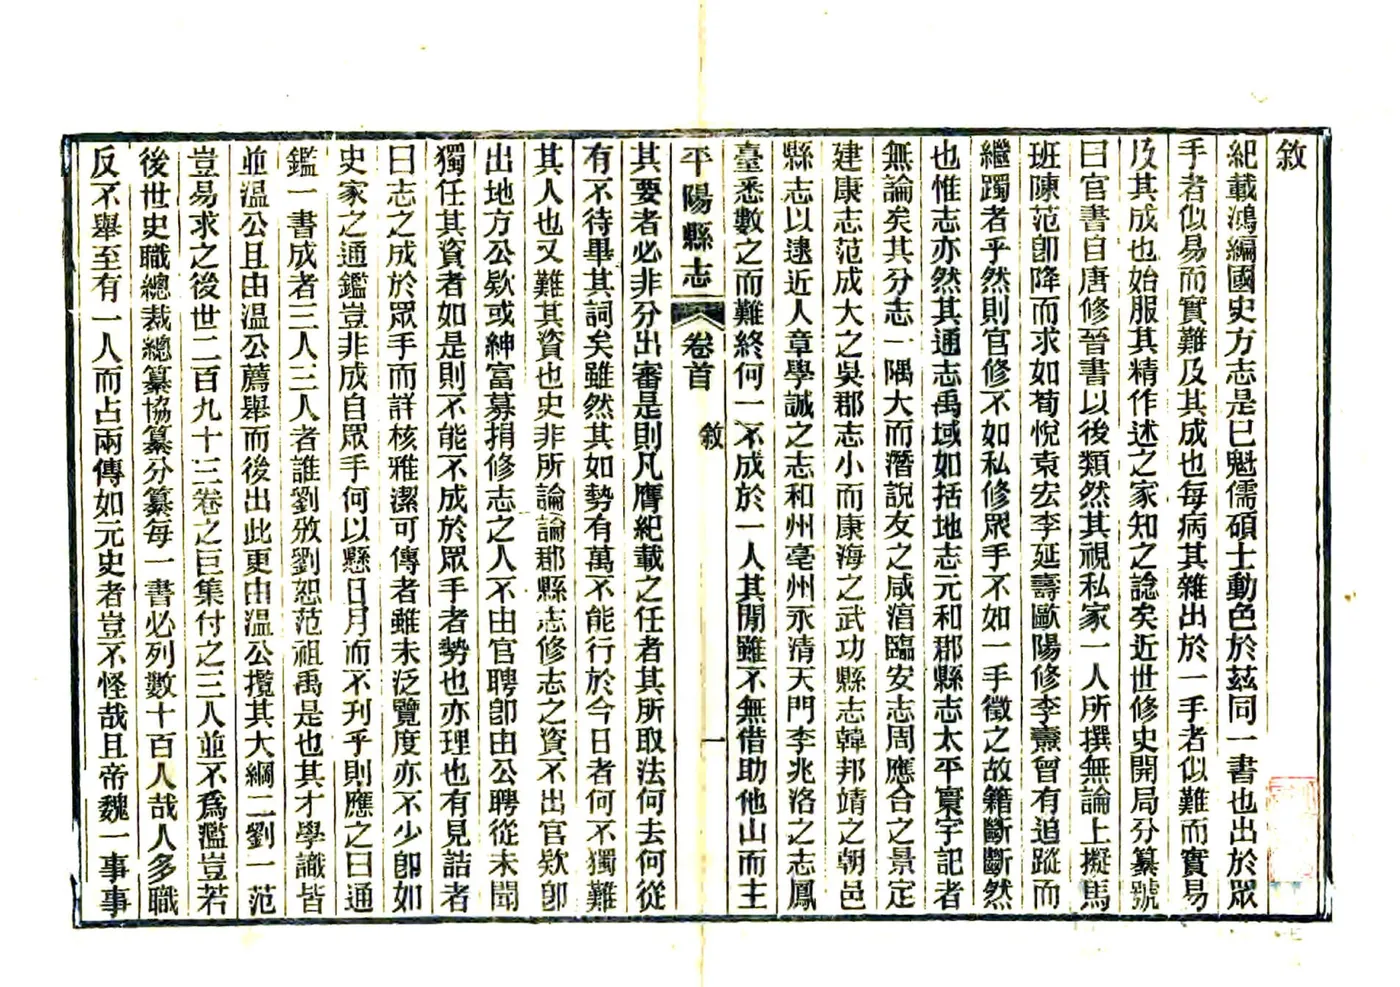 敘
紀載鴻編國史方志是已魁儒碩士動色於茲同一書也出於眾
手者似易而實難及其成也每病其雜出於一手者似難而實易
及其成也始服其精作述之家知之諗矣近世修史開局分纂號
曰官書自唐修晉書以後類然其視私家一人所撰無論上擬馬
班陳范卽降而求如荀悅袁宏李延壽歐陽修李燾曾有追蹤而
繼躅者乎然則官修不如私修眾手不如一手徵之故籍斷斷然
也惟志亦然其通志禹域如括地志元和郡縣志太平寰宇記者
無論矣其分志一隅大而潛說友之咸淳臨安志周應合之景定
建康志范成大之吳郡志小而康海之武功縣志韓邦靖之朝邑
縣志以逮近人章學誠之志和州亳州永清天門李兆洛之志鳳
臺悉數之而難終何一不成於一人其閒雖不無借助他山而主
平陽縣志 卷首 敘 一
其要者必非分出審是則凡膺紀載之任者其所取法何去何從
有不待畢其詞矣雖然其如勢有萬不能行於今日者何不獨難
其人也又難其資也史非所論論郡縣志修志之資不出官欵卽
出地方公欵或紳富募捐修志之人不由官聘卽由公聘從未聞
獨任其資者如是則不能不成於眾手者勢也亦理也有見詰者
曰志之成於眾手而詳核雅潔可傳者雖未泛覽度亦不少卽如
史家之通鑑豈非成自眾手何以懸日月而不刊乎則應之曰通
鑑一書成者三人三人者誰劉攽劉恕范祖禹是也其才學識皆
並溫公且由溫公薦舉而後出此更由溫公攬其大綱二劉一范
豈易求之後世二百九十三卷之巨集付之三人並不爲濫豈若
後世史職總裁總纂協纂分纂每一書必列數十百人哉人多職
反不舉至有一人而占兩傳如元史者豈不怪哉且帝魏一事事